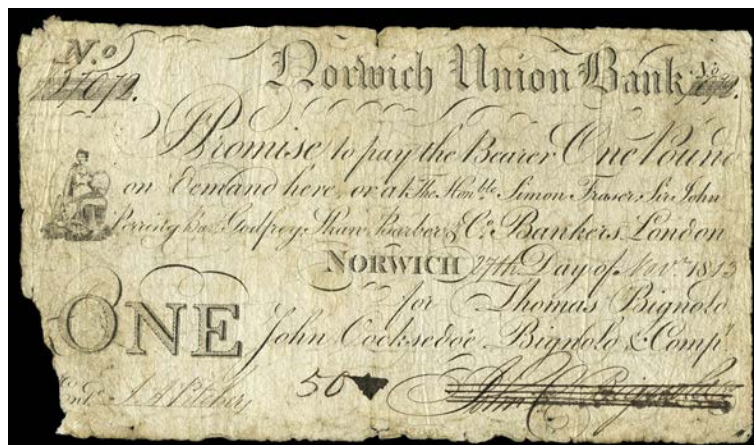 No Norwich Union Bank No
Promise to pay the Bearer One Pound
on Demand here, or at The Honble Simon Fraser, Sir John
Perring Bart Godfrey, Shaw, Barber & Co. Bankers London
NORWICH 27th Day of Novr 1813
for Thomas Bignold
ONE John Cocksedge Bignold & Compy
50